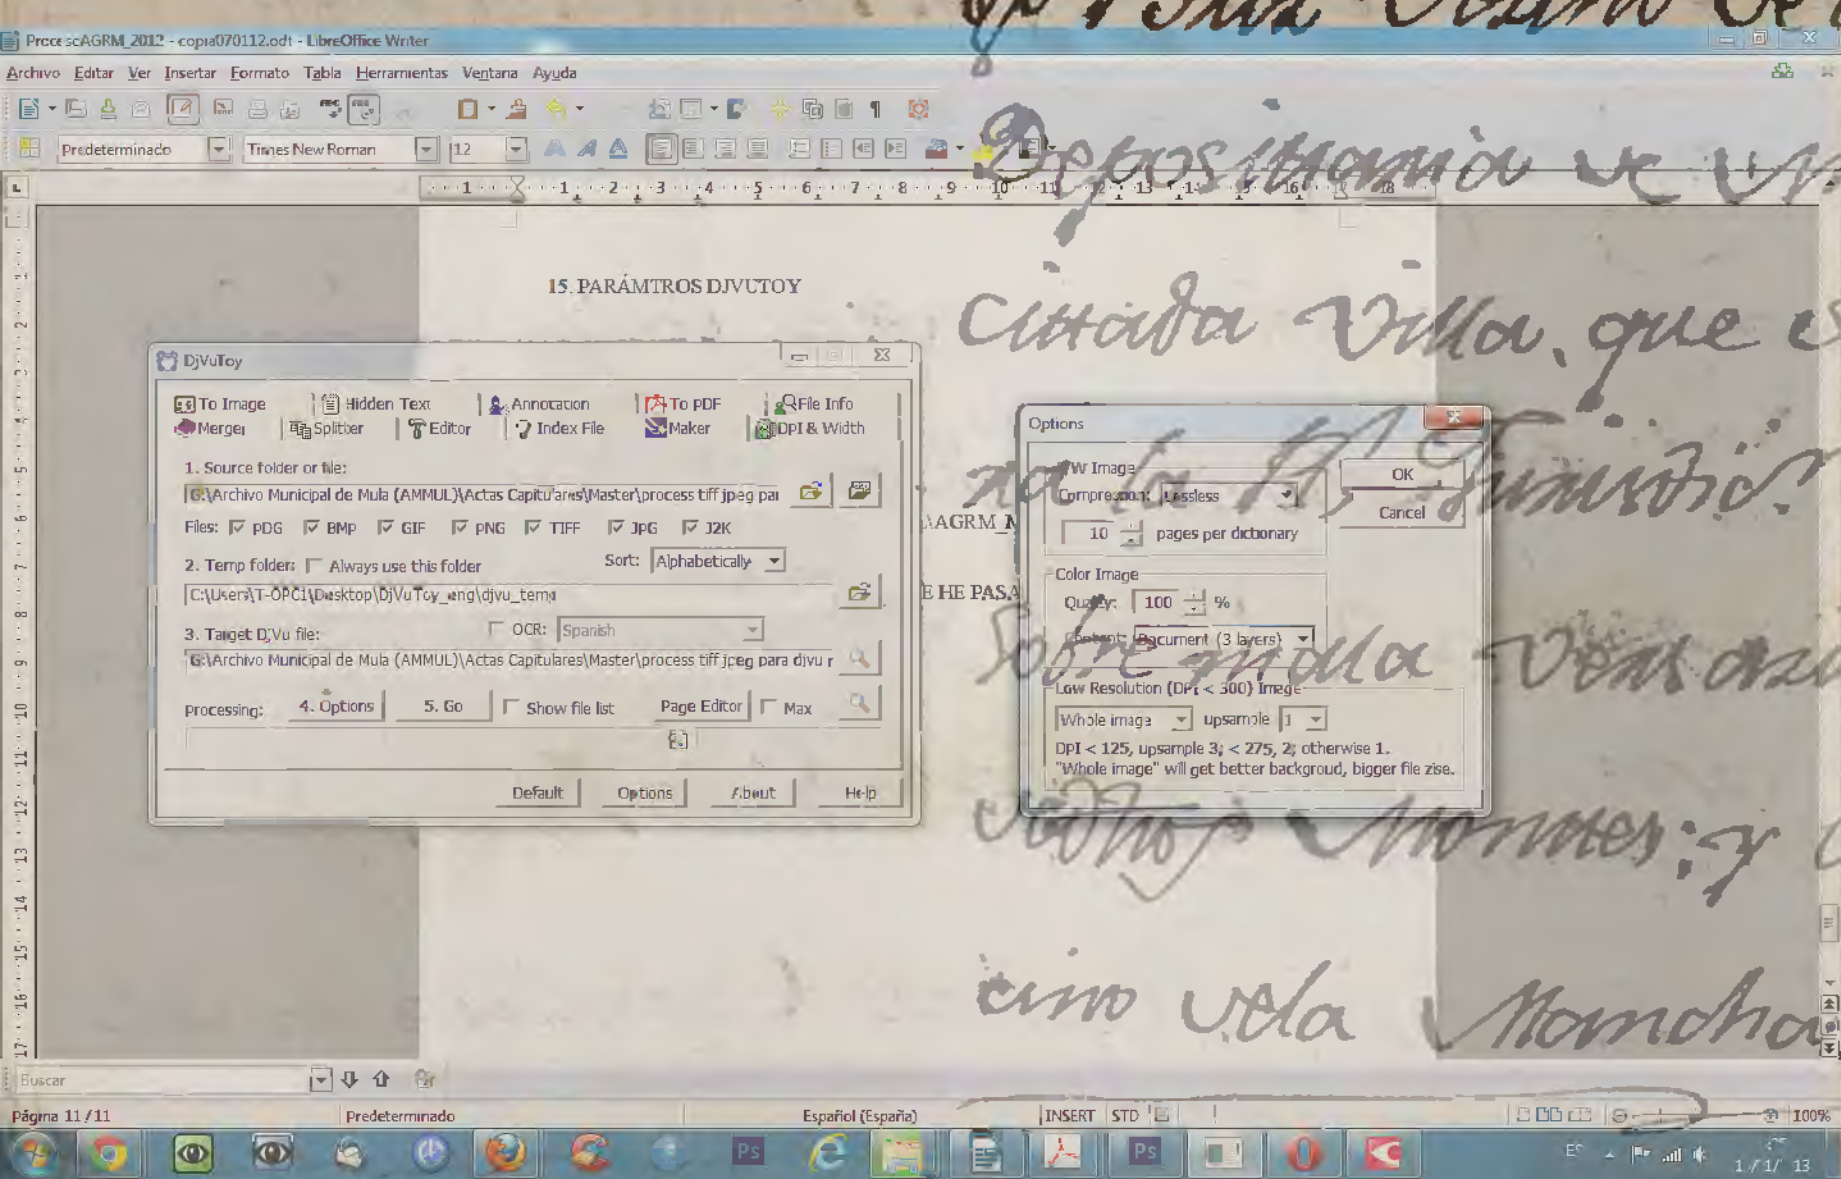 ProcescAGRM_2012 - copia070112.odt - LibreOffice Writer
Archivo Editar Ver Insertar Formato Tabla Herramientas Ventana Ayuda
Predeterminado Times New Roman 12
15. PARÁMTROS DJVUTOY
DjVuToy
To Image Hidden Text Annotation To PDF File Info
Merger Splitter Editor Index File Maker DPI & Width
1. Source folder or file:
G:\Archivo Municipal de Mula (AMMUL)\Actas Capitulares\Master\process tiff jpeg par
Files: PDG BMP GIF PNG TIFF JPG J2K
2. Temp folder: Always use this folder Sort: Alphabetically
C:\Users\T-OPC1\Desktop\DjVuToy_eng\djvu_temp
3. Target DjVu file: OCR: Spanish
G:\Archivo Municipal de Mula (AMMUL)\Actas Capitulares\Master\process tiff jpeg para djvu r
Processing: 4. Options 5. Go Show file list Page Editor Max
Default Options About Help
\AGRM_M
E HE PASA
Options
BW Image
Compression: Lossless
10 pages per dictionary
OK
Cancel
Color Image
Quality: 100 %
Content: Document (3 layers)
Low Resolution (DPI < 300) Image
Whole image upsample 1
DPI < 125, upsample 3; < 275, 2; otherwise 1.
"Whole image" will get better backgroud, bigger file zise.
Depositaria de
Cittada Villa, que
na la
Sobre
y
cino vela Mancha
Buscar
Página 11 / 11 Predeterminado Español (España) INSERT STD 100%
Ps Ps ES